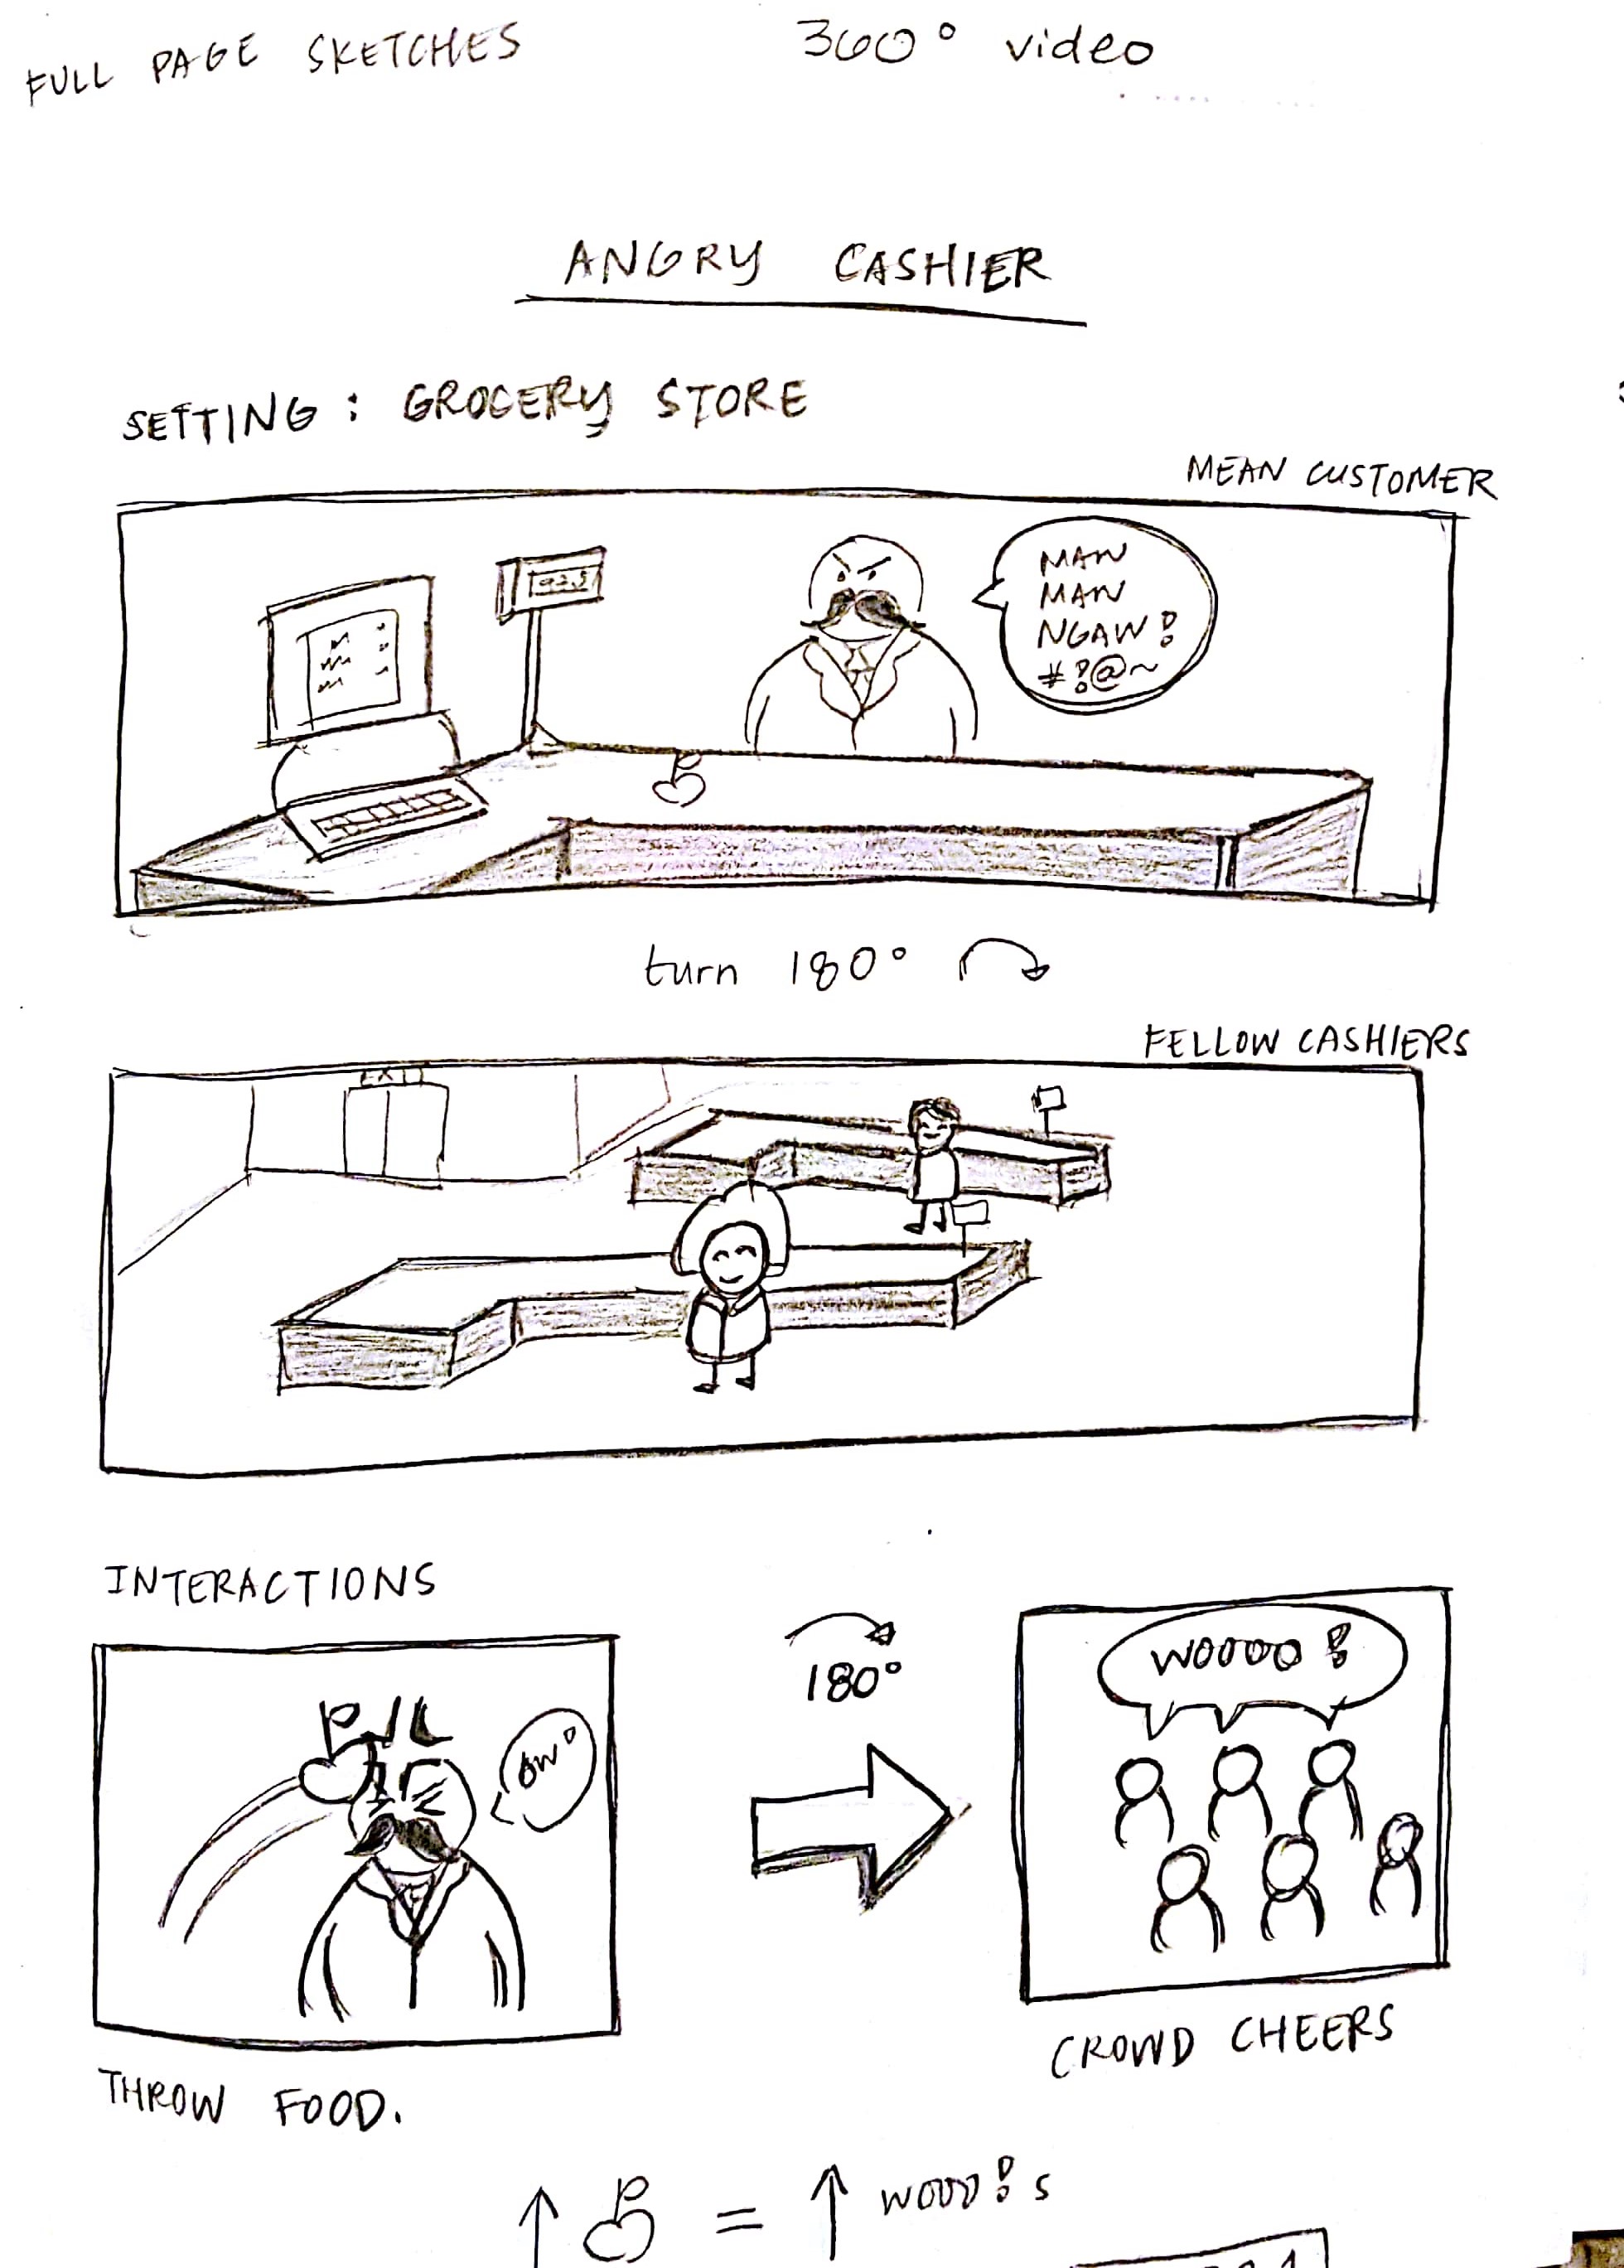 FULL PAGE SKETCHES
360° video
ANGRY CASHIER
SETTING: GROCERY STORE
MEAN CUSTOMER
MAN
MAN
NGAW!
#!@~
turn 180°
FELLOW CASHIERS
EXIT
INTERACTIONS
OW!
180°
WOOOO!
THROW FOOD.
CROWD CHEERS
= WOOO!s